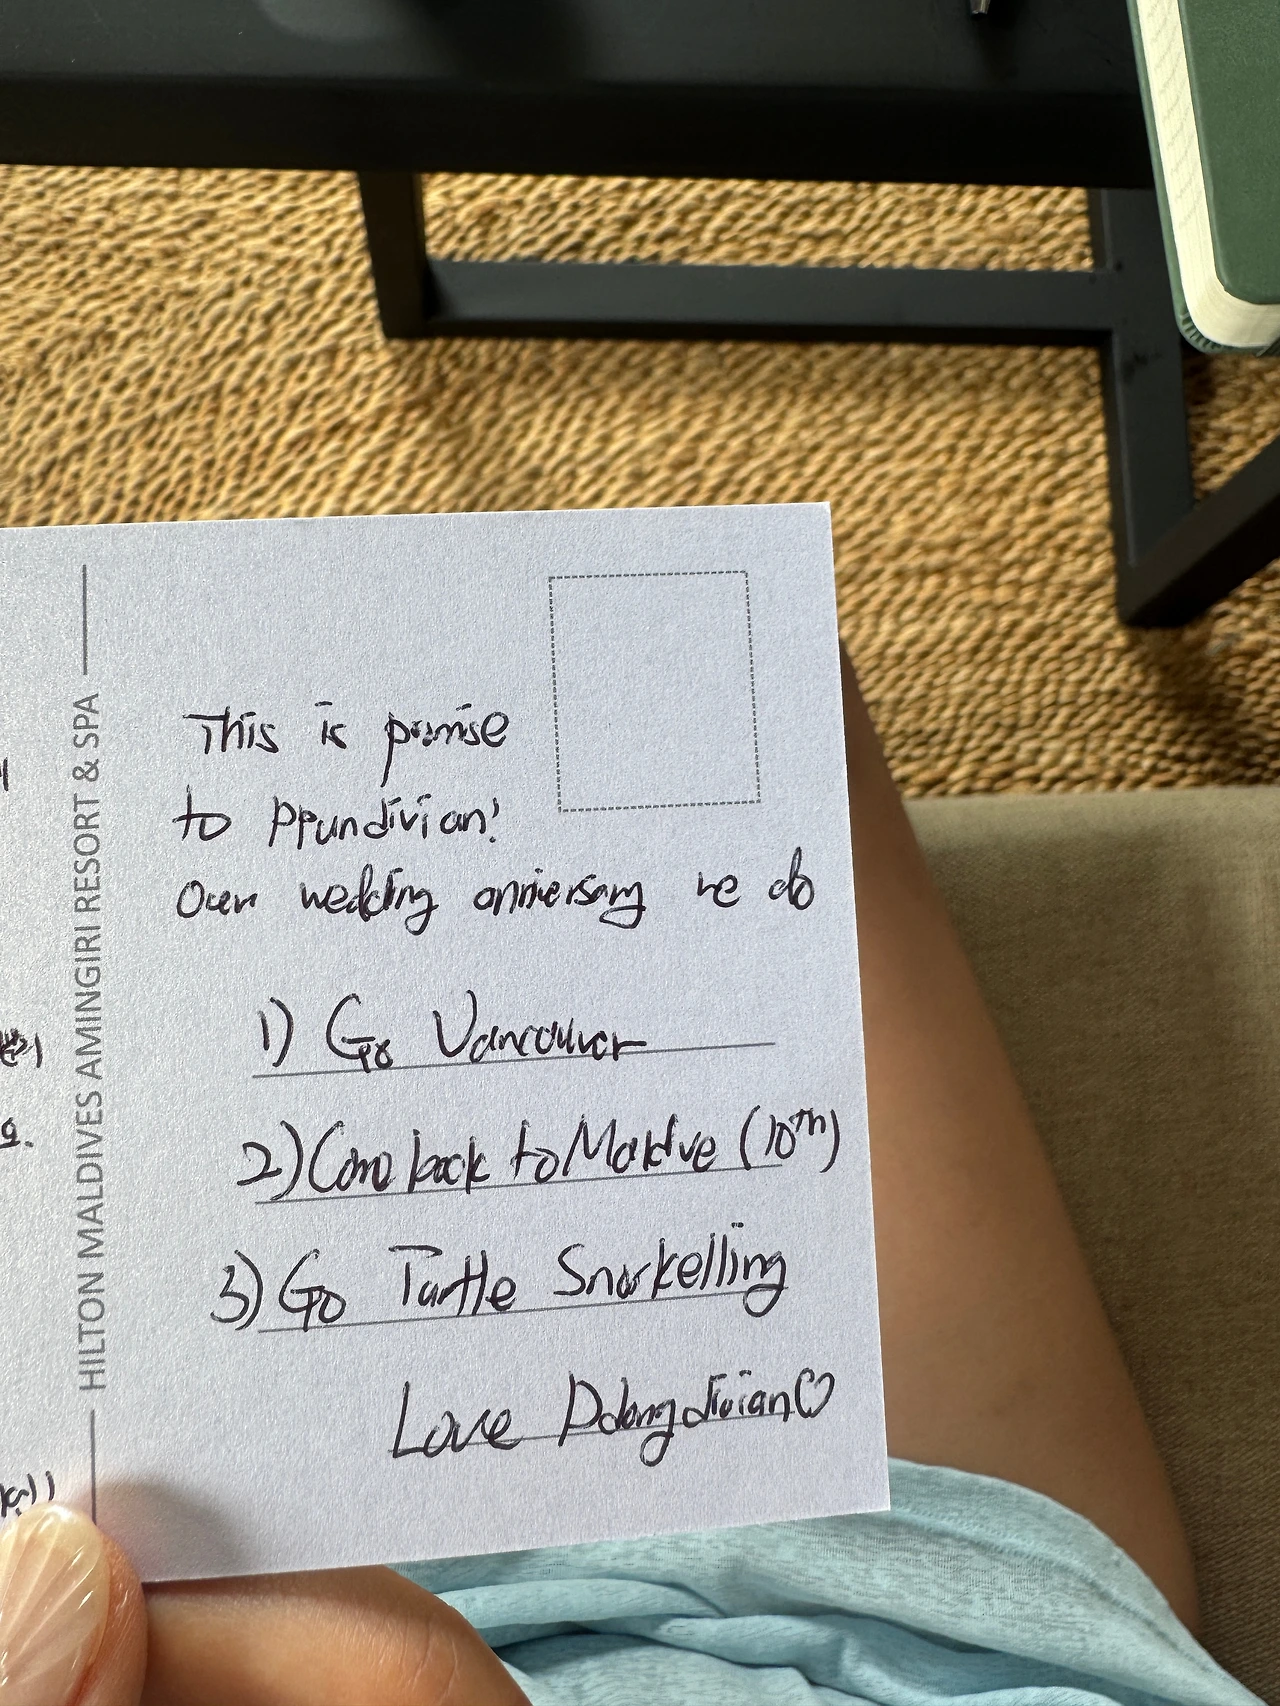 HILTON MALDIVES AMINGIRI RESORT & SPA
This is promise
to ppundivian!
Our wedding anniersary we do
1) Go Vancouver
2) Come back to Maldive (10th)
3) Go Turtle Snorkelling
Love Ddongdivian♡